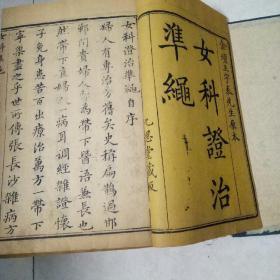 金壇王宇泰先生原本
女科證治
準繩
九思堂藏板
女科證治準繩自序
婦人有專治方舊矣史稱扁鵲過邯
鄲聞貴婦人為帶下醫語兼長也
然帶下直婦人一病耳調經雜證懷
子免身患苦百出療治萬方一帶下
寧渠盡之乎世所傳張長沙雜病方